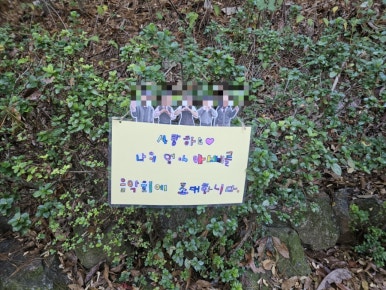 사랑하는♡
나의 영웅
음악회에 초대합니다.